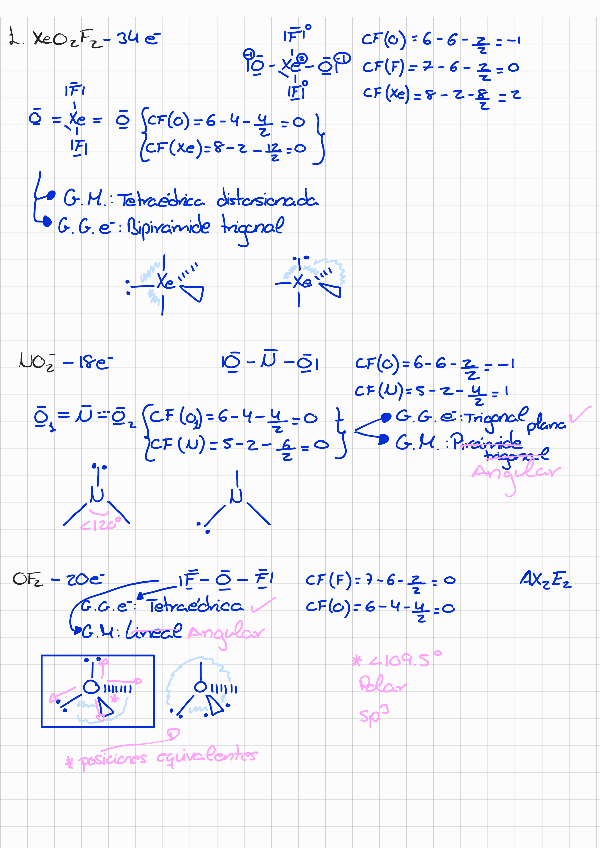 1. XeO₂F₂ - 34 e⁻
|F̄|⁰
|Ō - Xe - Ō|
-1 2 -1
|F̲|⁰
CF(O) = 6 - 6 - 2/2 = -1
CF(F) = 7 - 6 - 2/2 = 0
CF(Xe) = 8 - 2 - 8/2 = 2
|F̄|
Ō = Xe = Ō
|F̲|
CF(O) = 6 - 4 - 4/2 = 0
CF(Xe) = 8 - 2 - 12/2 = 0
G.M.: Tetraédrica distorsionada
G.G.e⁻: Bipirámide trigonal
Xe
Xe
NO₂⁻ - 18e⁻
|Ō - N̄ - Ō|
CF(O) = 6 - 6 - 2/2 = -1
CF(N) = 5 - 2 - 4/2 = 1
Ō₁ = N̄ = Ō₂
CF(O₁) = 6 - 4 - 4/2 = 0
CF(N) = 5 - 2 - 6/2 = 0
G.G.e⁻: Trigonal plana ✓
G.M.: Pirámide trigonal
Angular
N
<120°
N
OF₂ - 20e⁻
|F̄ - Ō - F̄|
CF(F) = 7 - 6 - 2/2 = 0
CF(O) = 6 - 4 - 4/2 = 0
AX₂E₂
G.G.e⁻: Tetraédrica ✓
G.M: Lineal Angular
O
*
O
* <109.5°
Polar
sp³
* posiciones equivalentes